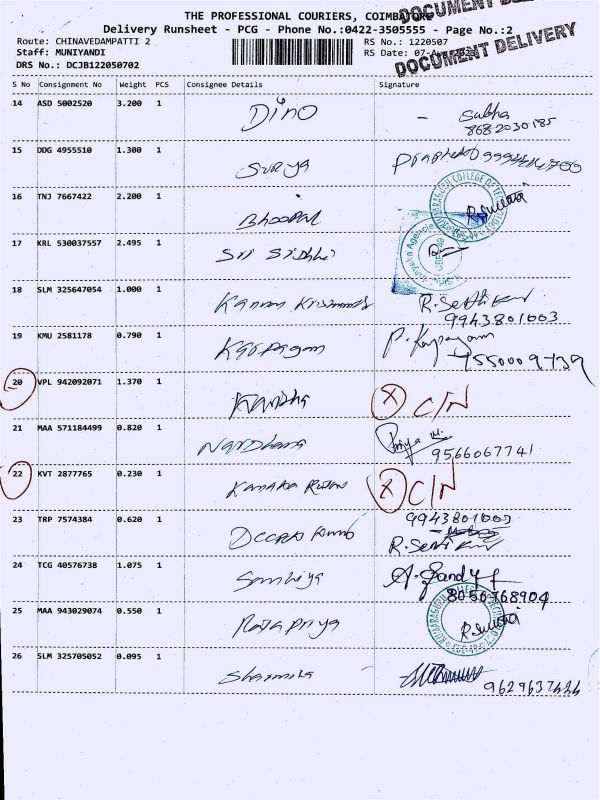 THE PROFESSIONAL COURIERS, COIMBATORE
DOCUMENT DELIVERY
Delivery Runsheet - PCG - Phone No.:0422-3505555 - Page No.:2
Route: CHINAVEDAMPATTI 2
RS No.: 1220507
Staff: MUNIYANDI
RS Date: 07-Aug-2023
DOCUMENT DELIVERY
DRS No.: DCJB122050702
S No Consignment No Weight PCS Consignee Details Signature
14 ASD 5002520 3.200 1 Dino - Subha
8682030185
15 DDG 4955510 1.300 1 Surya
16 TNJ 7667422 2.200 1 Bhoopal
KUMARAGURU COLLEGE OF TECHNOLOGY
17 KRL 530037557 2.495 1 Sri Siddhi
18 SLM 325647054 1.000 1 Kannan R. Senthil Kumar
9943801003
19 KMU 2581178 0.790 1 Karpagam P. Karpagam
9550009739
20 VPL 942092071 1.370 1 X C/N
21 MAA 571184499 0.820 1 Nandhana Priya M.
9566067741
22 KVT 2877765 0.230 1 Kanaka X C/N
23 TRP 7574384 0.620 1 9943801003
24 TCG 40576738 1.075 1 Sowmiya
8056768904
25 MAA 943029074 0.550 1 Rajapriya
26 SLM 325705052 0.095 1 Sharmila
9629637444